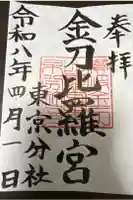 奉拝
金刀比羅宮
東京分社
令和八年四月一日